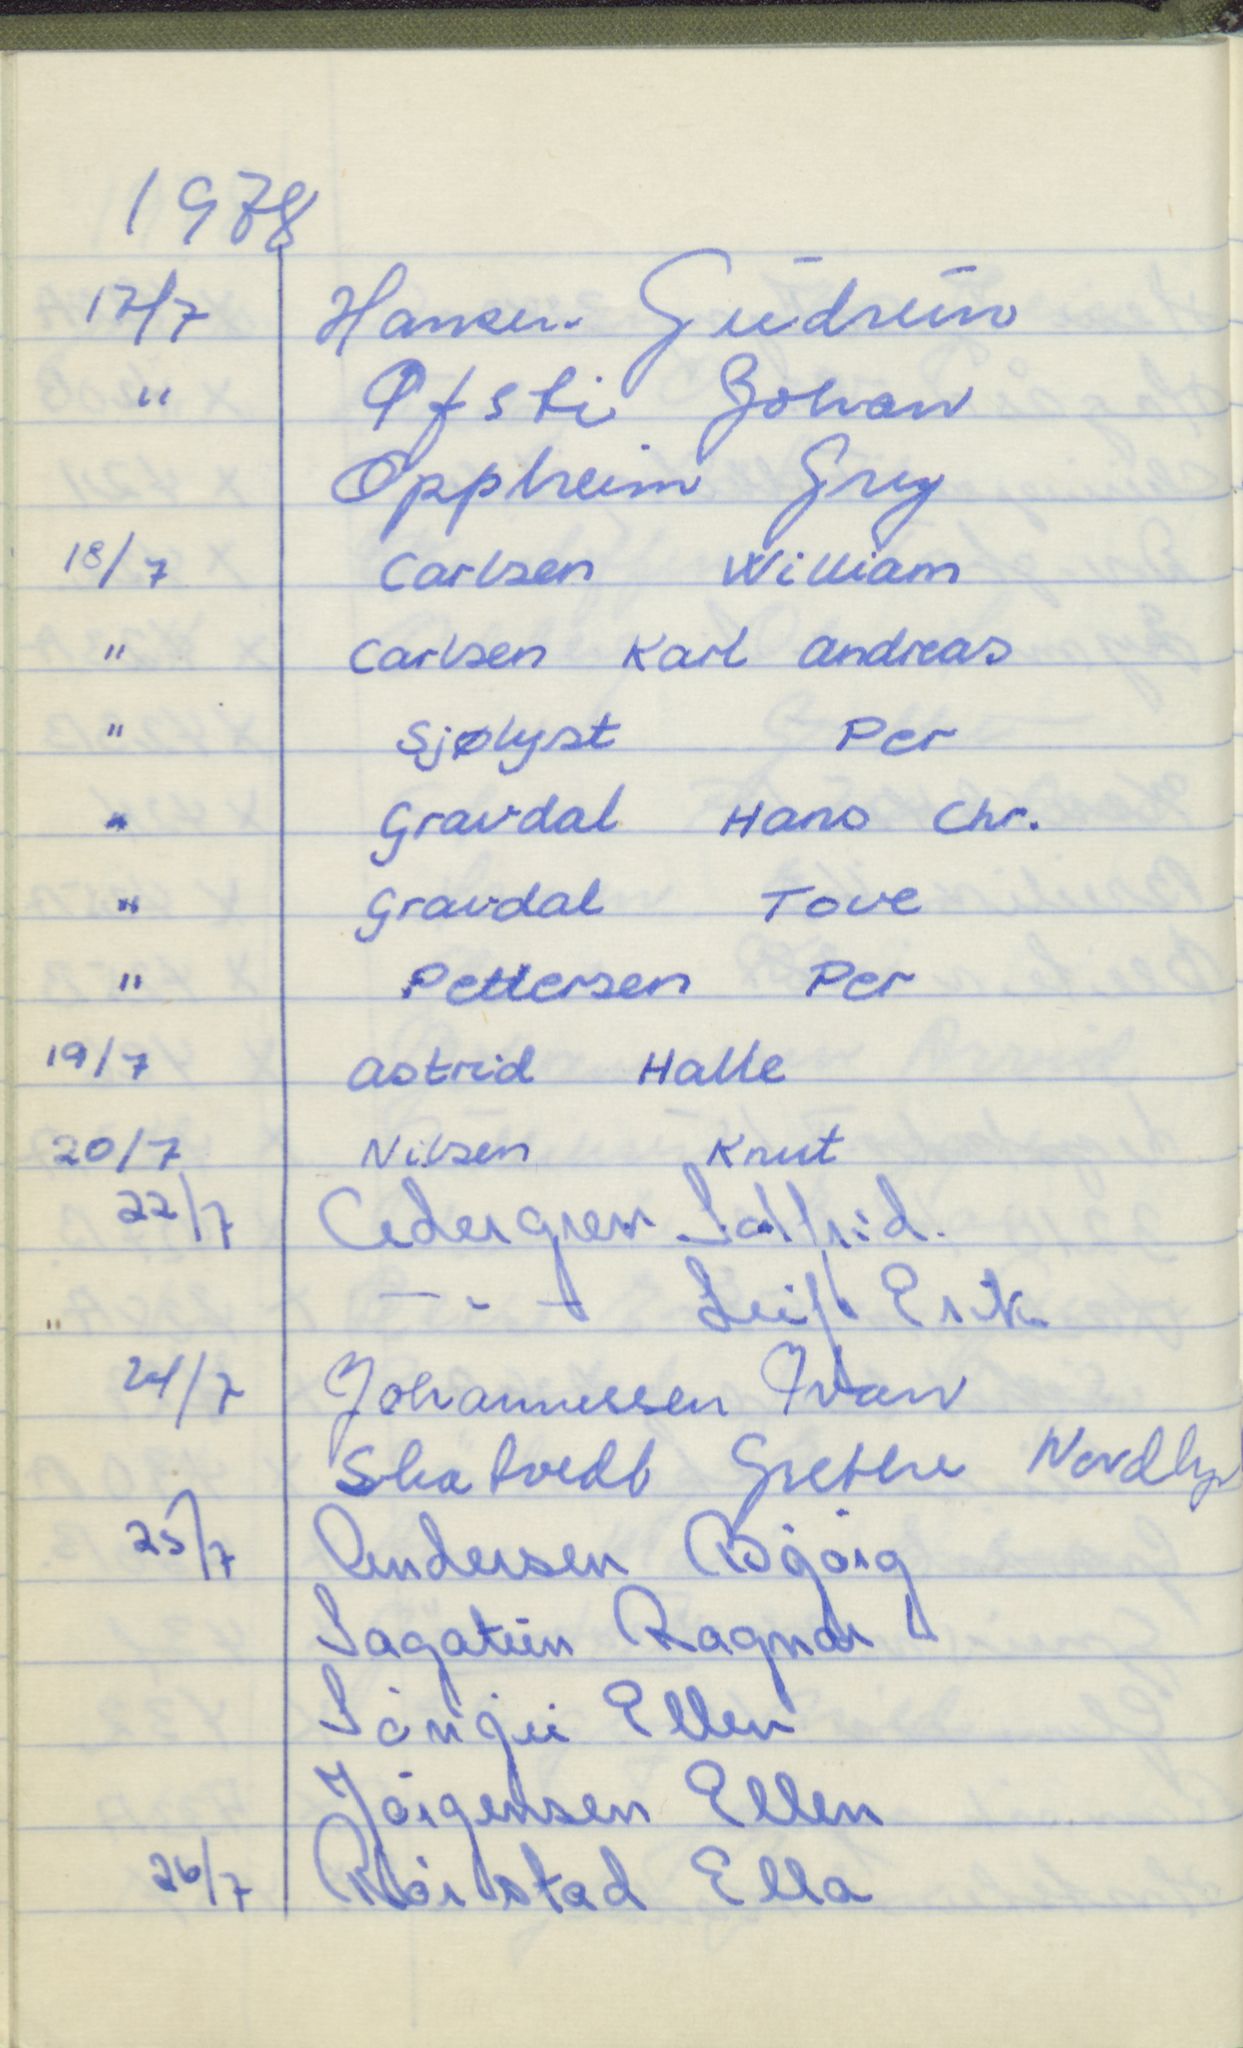 1978
17/7 Hansen Gudrun
" Øfsti Johan
Oppheim Gry
18/7 Carlsen William
" Carlsen Karl Andreas
" Sjølyst Per
" Gravdal Hans Chr.
" Gravdal Tove
" Pettersen Per
19/7 Astrid Halle
20/7 Nilsen Knut
22/7 Cedergren Solfrid.
" — " — Leif Erik
24/7 Johannessen Ivan
Skatvedt Grethe
25/7 Andersen Bjørg
Sagatun Ragnar
Ellen
Jørgensen Ellen
26/7 Rørstad Ella